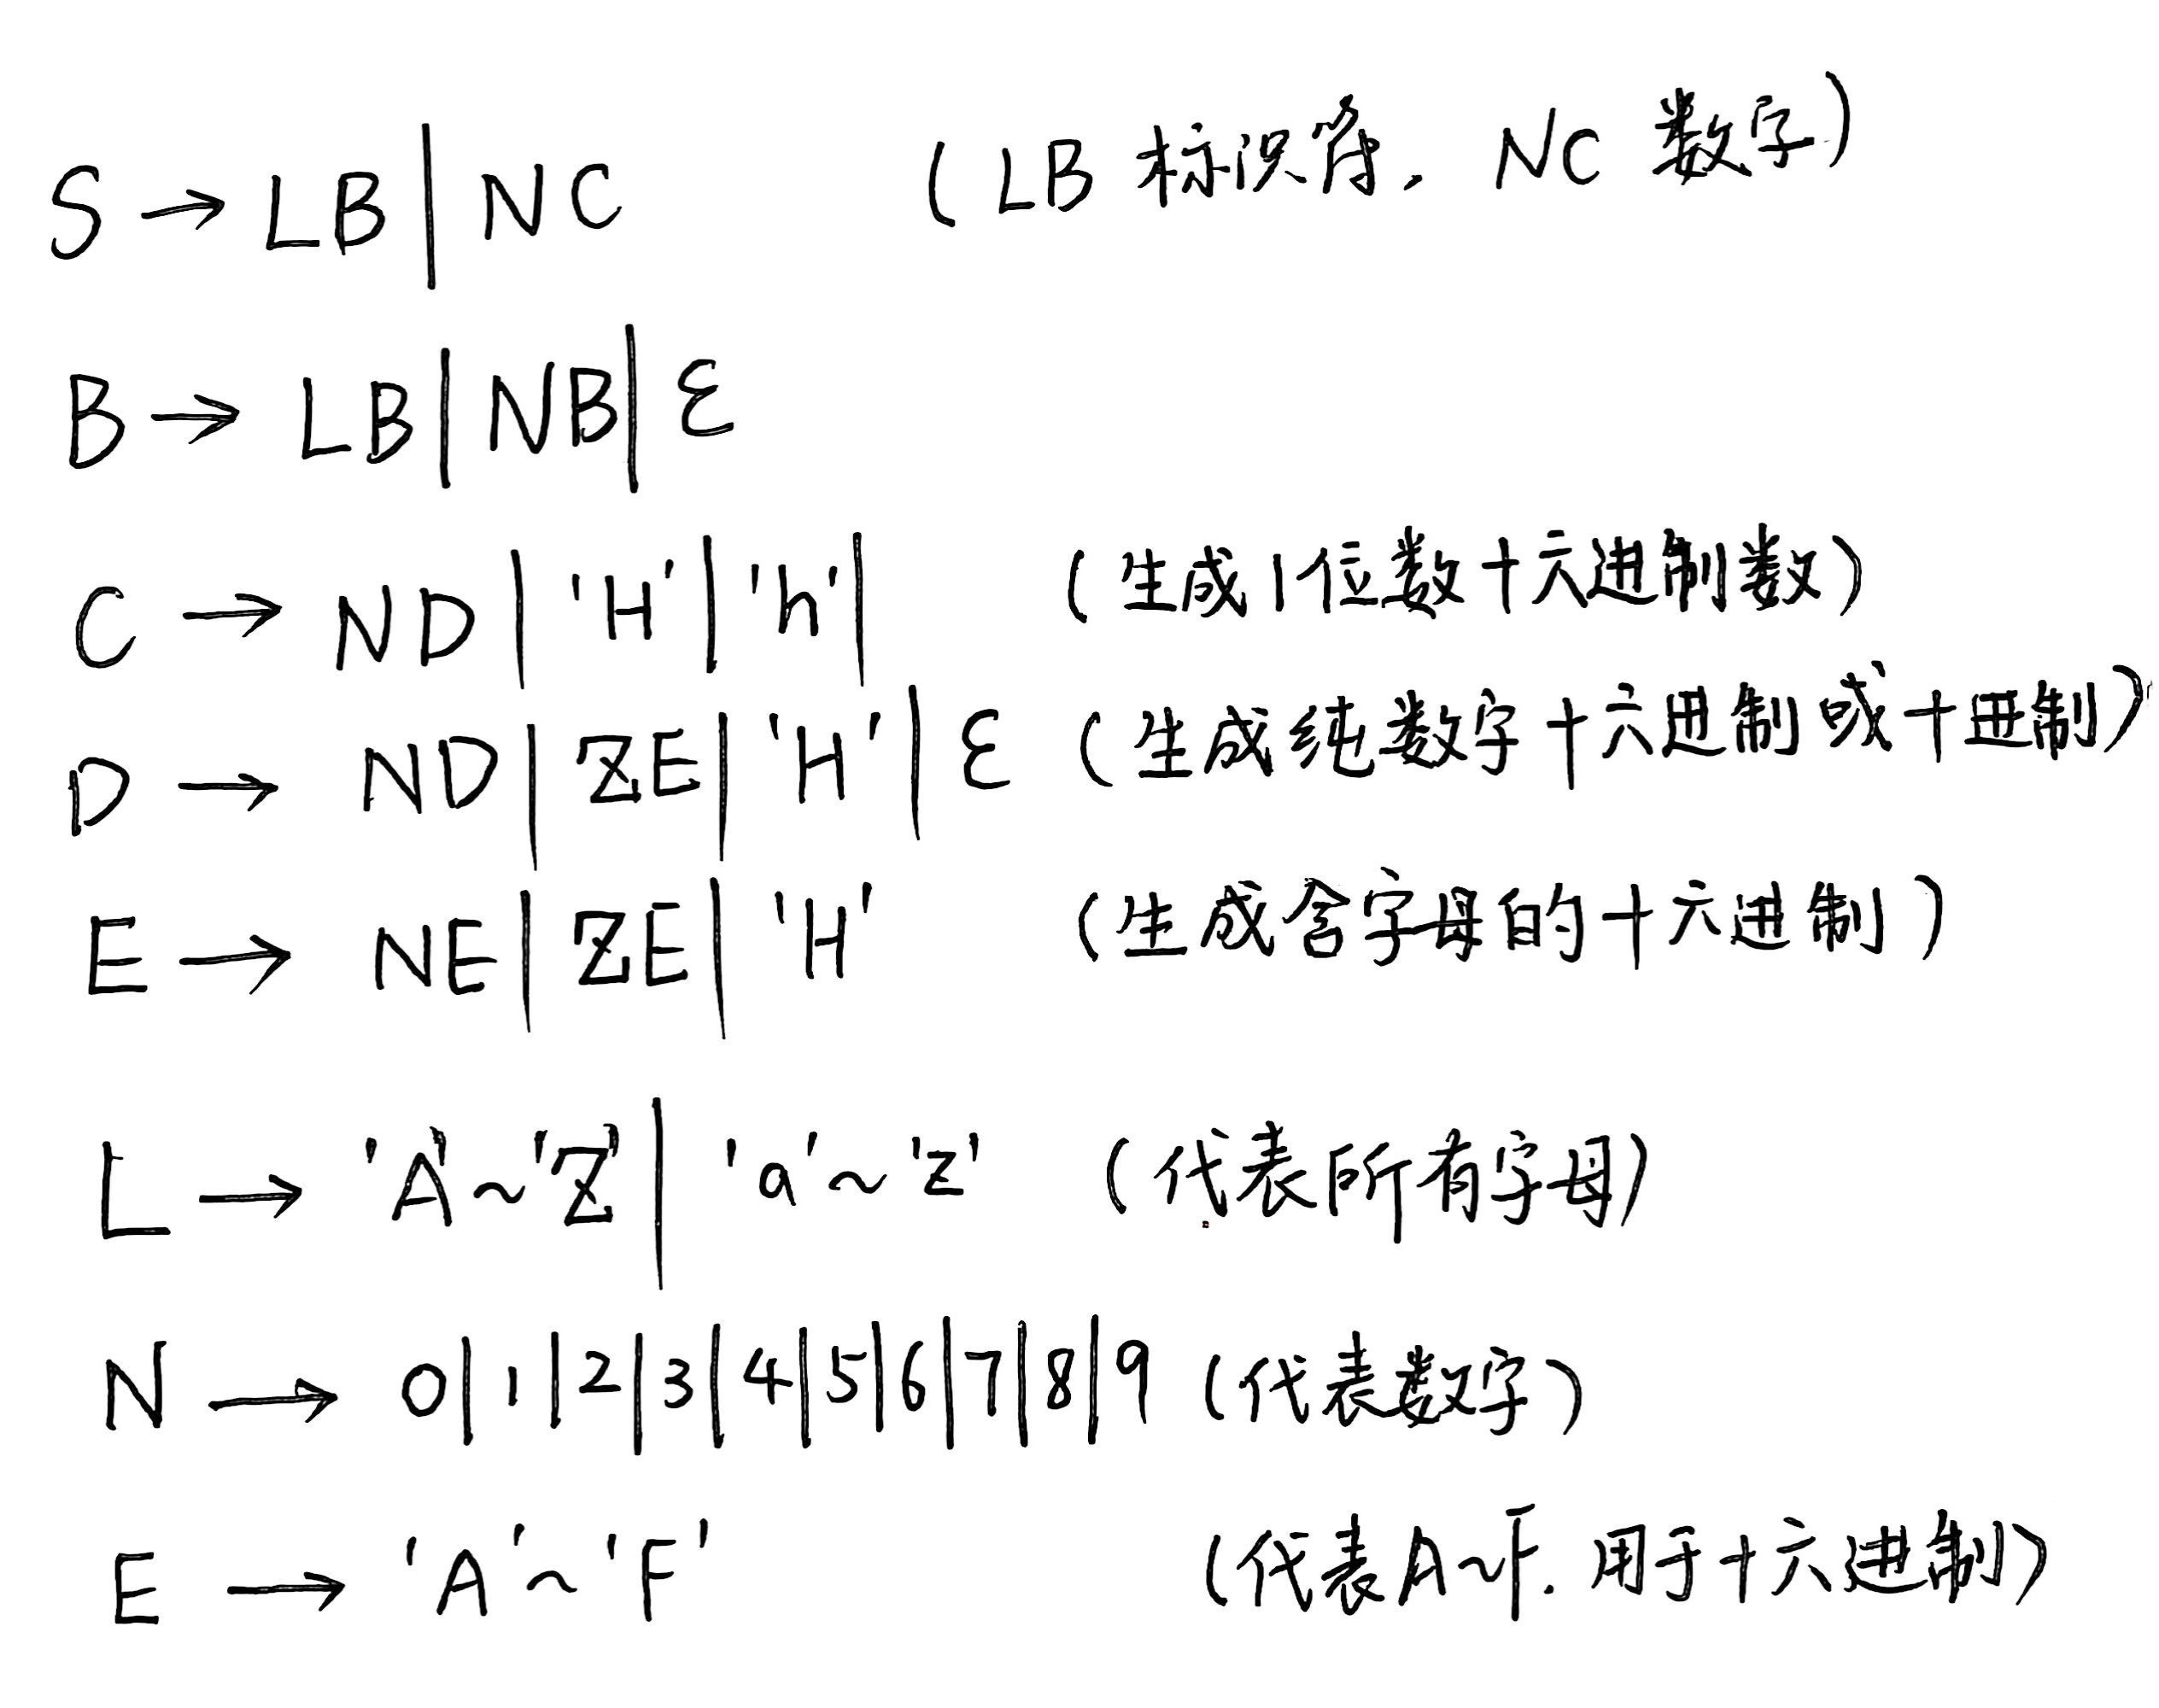 S → LB | NC (LB 标识符, NC 数字)
B → LB | NB | ε
C → ND | 'H' | 'h' | (生成1位数十六进制数)
D → ND | ZE | 'H' | ε (生成纯数字十六进制或十进制)
E → NE | ZE | 'H' (生成含字母的十六进制)
L → 'A'~'Z' | 'a'~'z' (代表所有字母)
N → 0|1|2|3|4|5|6|7|8|9 (代表数字)
E → 'A'~'F' (代表A~F. 用于十六进制)